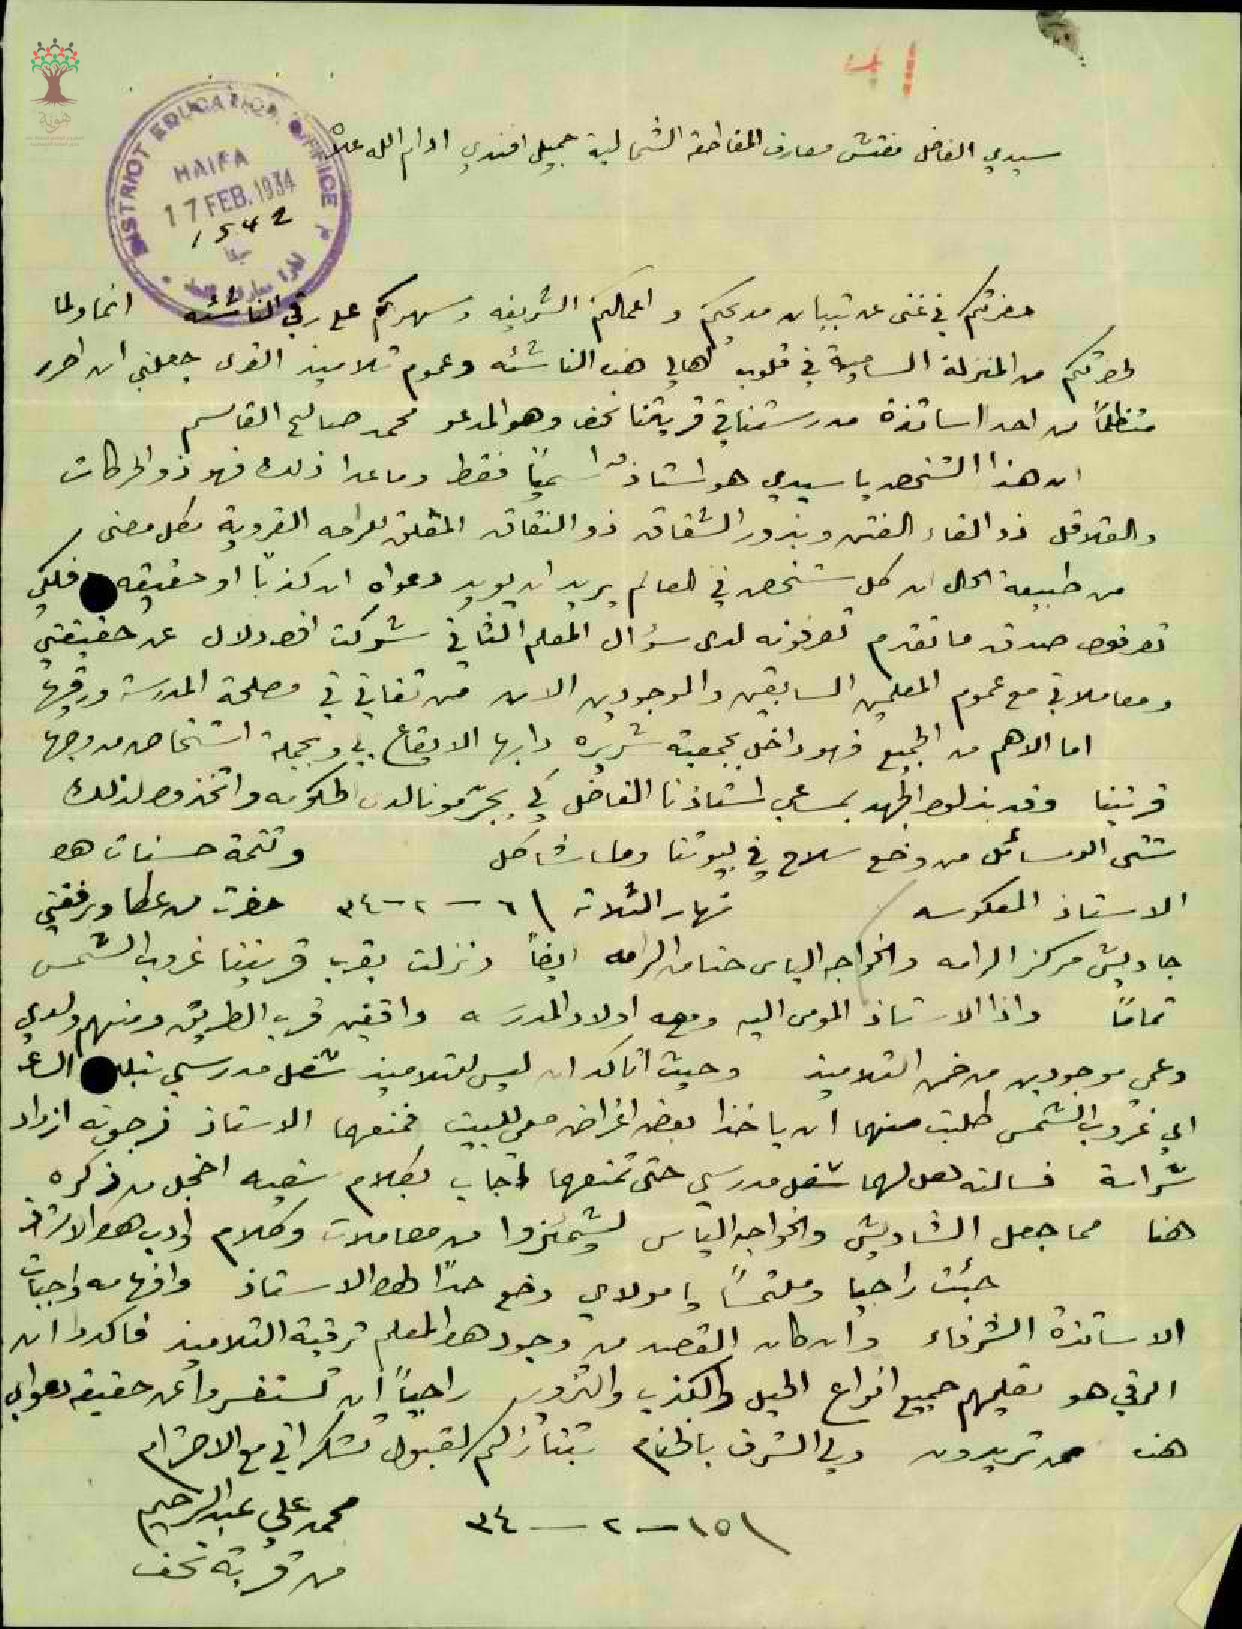 41
هوية
DISTRICT EDUCATION OFFICE
HAIFA
17 FEB. 1934
1542
حيفا
سيدي الفاضل مفتش معارف المقاطعة الشمالية جميل افندي ادام الله علاه
حضرتكم في غنى عن تبيان مدحكم و اعمالكم الشريفه وسهركم على رقي الناشئه انما ولما
لحضرتكم من المنزلة السامية في قلوب اهالي هذه الناشئه وعموم تلاميذ القرى جعلني ان احرر
متظلماً من احد اساتذة مدرستنا في قريتنا نحف وهو المدعو محمد صالح القاسم
ان هذا الشخص يا سيدي هو استاذ اسمياً فقط وما عدا ذلك فهو ذو الحركات
والقلاقل ذو القاء الفتن وبذور الشقاق ذو النفاق المقلق للراحه القروية بكل معنى
من طبيعة الحال ان كل شخص في العالم يريد ان يويد دعواه ان كذباً او حقيقه فلكي
تعرفوا صدق ما تقدم تعرفونه لدى سؤال المعلم الثاني شوكت افندي دلال عن حقيقتي
ومعاملاتي مع عموم المعلمين السابقين والموجودين الان من تفاني في مصلحة المدرسة ورقيها
اما الاهم من الجميع فهو داخل بجمعية شريره دابها الايقاع بي وبجملة اشخاص من وجها
قريتنا وقد بذلوا الجهد بمساعي استاذنا الفاضل كي يجرّمونا لدى الحكومه واتخذوا لذلك
شتى الوسائل من وضع سلاح في بيوتنا وما شاكل وتتمة حسنات هذا
الاستاذ المعكوسه نهار الثلاثه ٦ - ٢ - ٣٤ حضرت من عكا وبرفقتي
جاويش مركز الرامه والخواجه الياس حنا من الرامه ايضاً ونزلت بقرب قريتنا غروب الشمس
تماماً واذا الاستاذ المومى اليه ومعه اولاد المدرسه واقفين قرب الطريق ومنهم ولدي
وعمي موجودين من ضمن التلاميذ وحيث اتاكد ان ليس للتلاميذ شغل مدرسي بتلك الساعه
اي غروب الشمس طلبت منهما ان ياخذا بعض اغراض معي للبيت فمنعهما الاستاذ فرجوته ازداد
شراسة فسالته هل لهما شغل مدرسي حتى تمنعهما اجاب بكلام سفيه اخجل من ذكره
هنا مما جعل الشاويش والخواجه الياس ليشمئزوا من معاملات وكلام وأدب هذا الاستاذ
جئت راجيا وملتمساً يا مولاي وضع حدّاً لهذا الاستاذ وافهامه واجبات
الاساتذة الشرفاء وان كان القصد من وجود هذا المعلم ترقية التلاميذ فاكدوا ان
الرقي هو تعليمهم جميع انواع الحيل والكذب والتزوير راجياً ان تستفسروا عن حقيقه دعواي
هذه ممن تريدون ولي الشرف بالختام بتنازلكم لقبول تشكراتي مع الاحترام
١٥ - ٢ - ٣٤ محمد علي عبد الرحيم
من قرية نحف